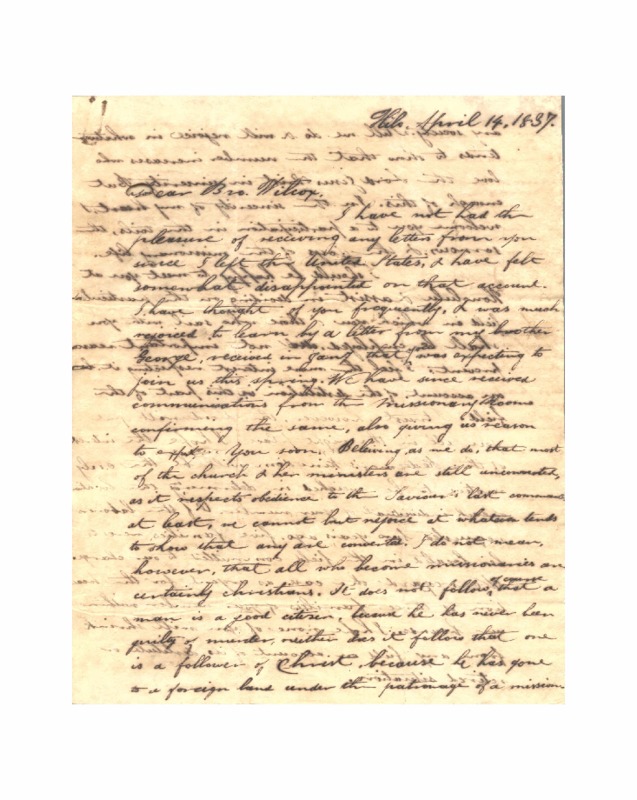 Hilo, April 14, 1837.
Dear Bro. Wilcox,
I have not had the
pleasure of receiving any letters from you
since I left the United States, & have felt
somewhat disappointed on that account.
I have thought of you frequently, & was much
rejoiced to learn by a letter from my brother
George, received in Jany that you was expecting to
join us this spring. We have since received
communications from the Missionary Rooms
confirming the same, also giving us reason
to expect you soon. Believing as we do, that most
of the church & her ministers are still unconverted,
as it respects obedience to the Saviour's last command
at least, we cannot but rejoice at whatever tends
to show that any are converted. I do not mean,
however, that all who become missionaries are
certainly christians. It does not follow, of course that a
man is a good citizen, because he has never been
guilty of murder, neither does it follow that one
is a follower of Christ, because he has gone
to a foreign land under the patronage of a mission-